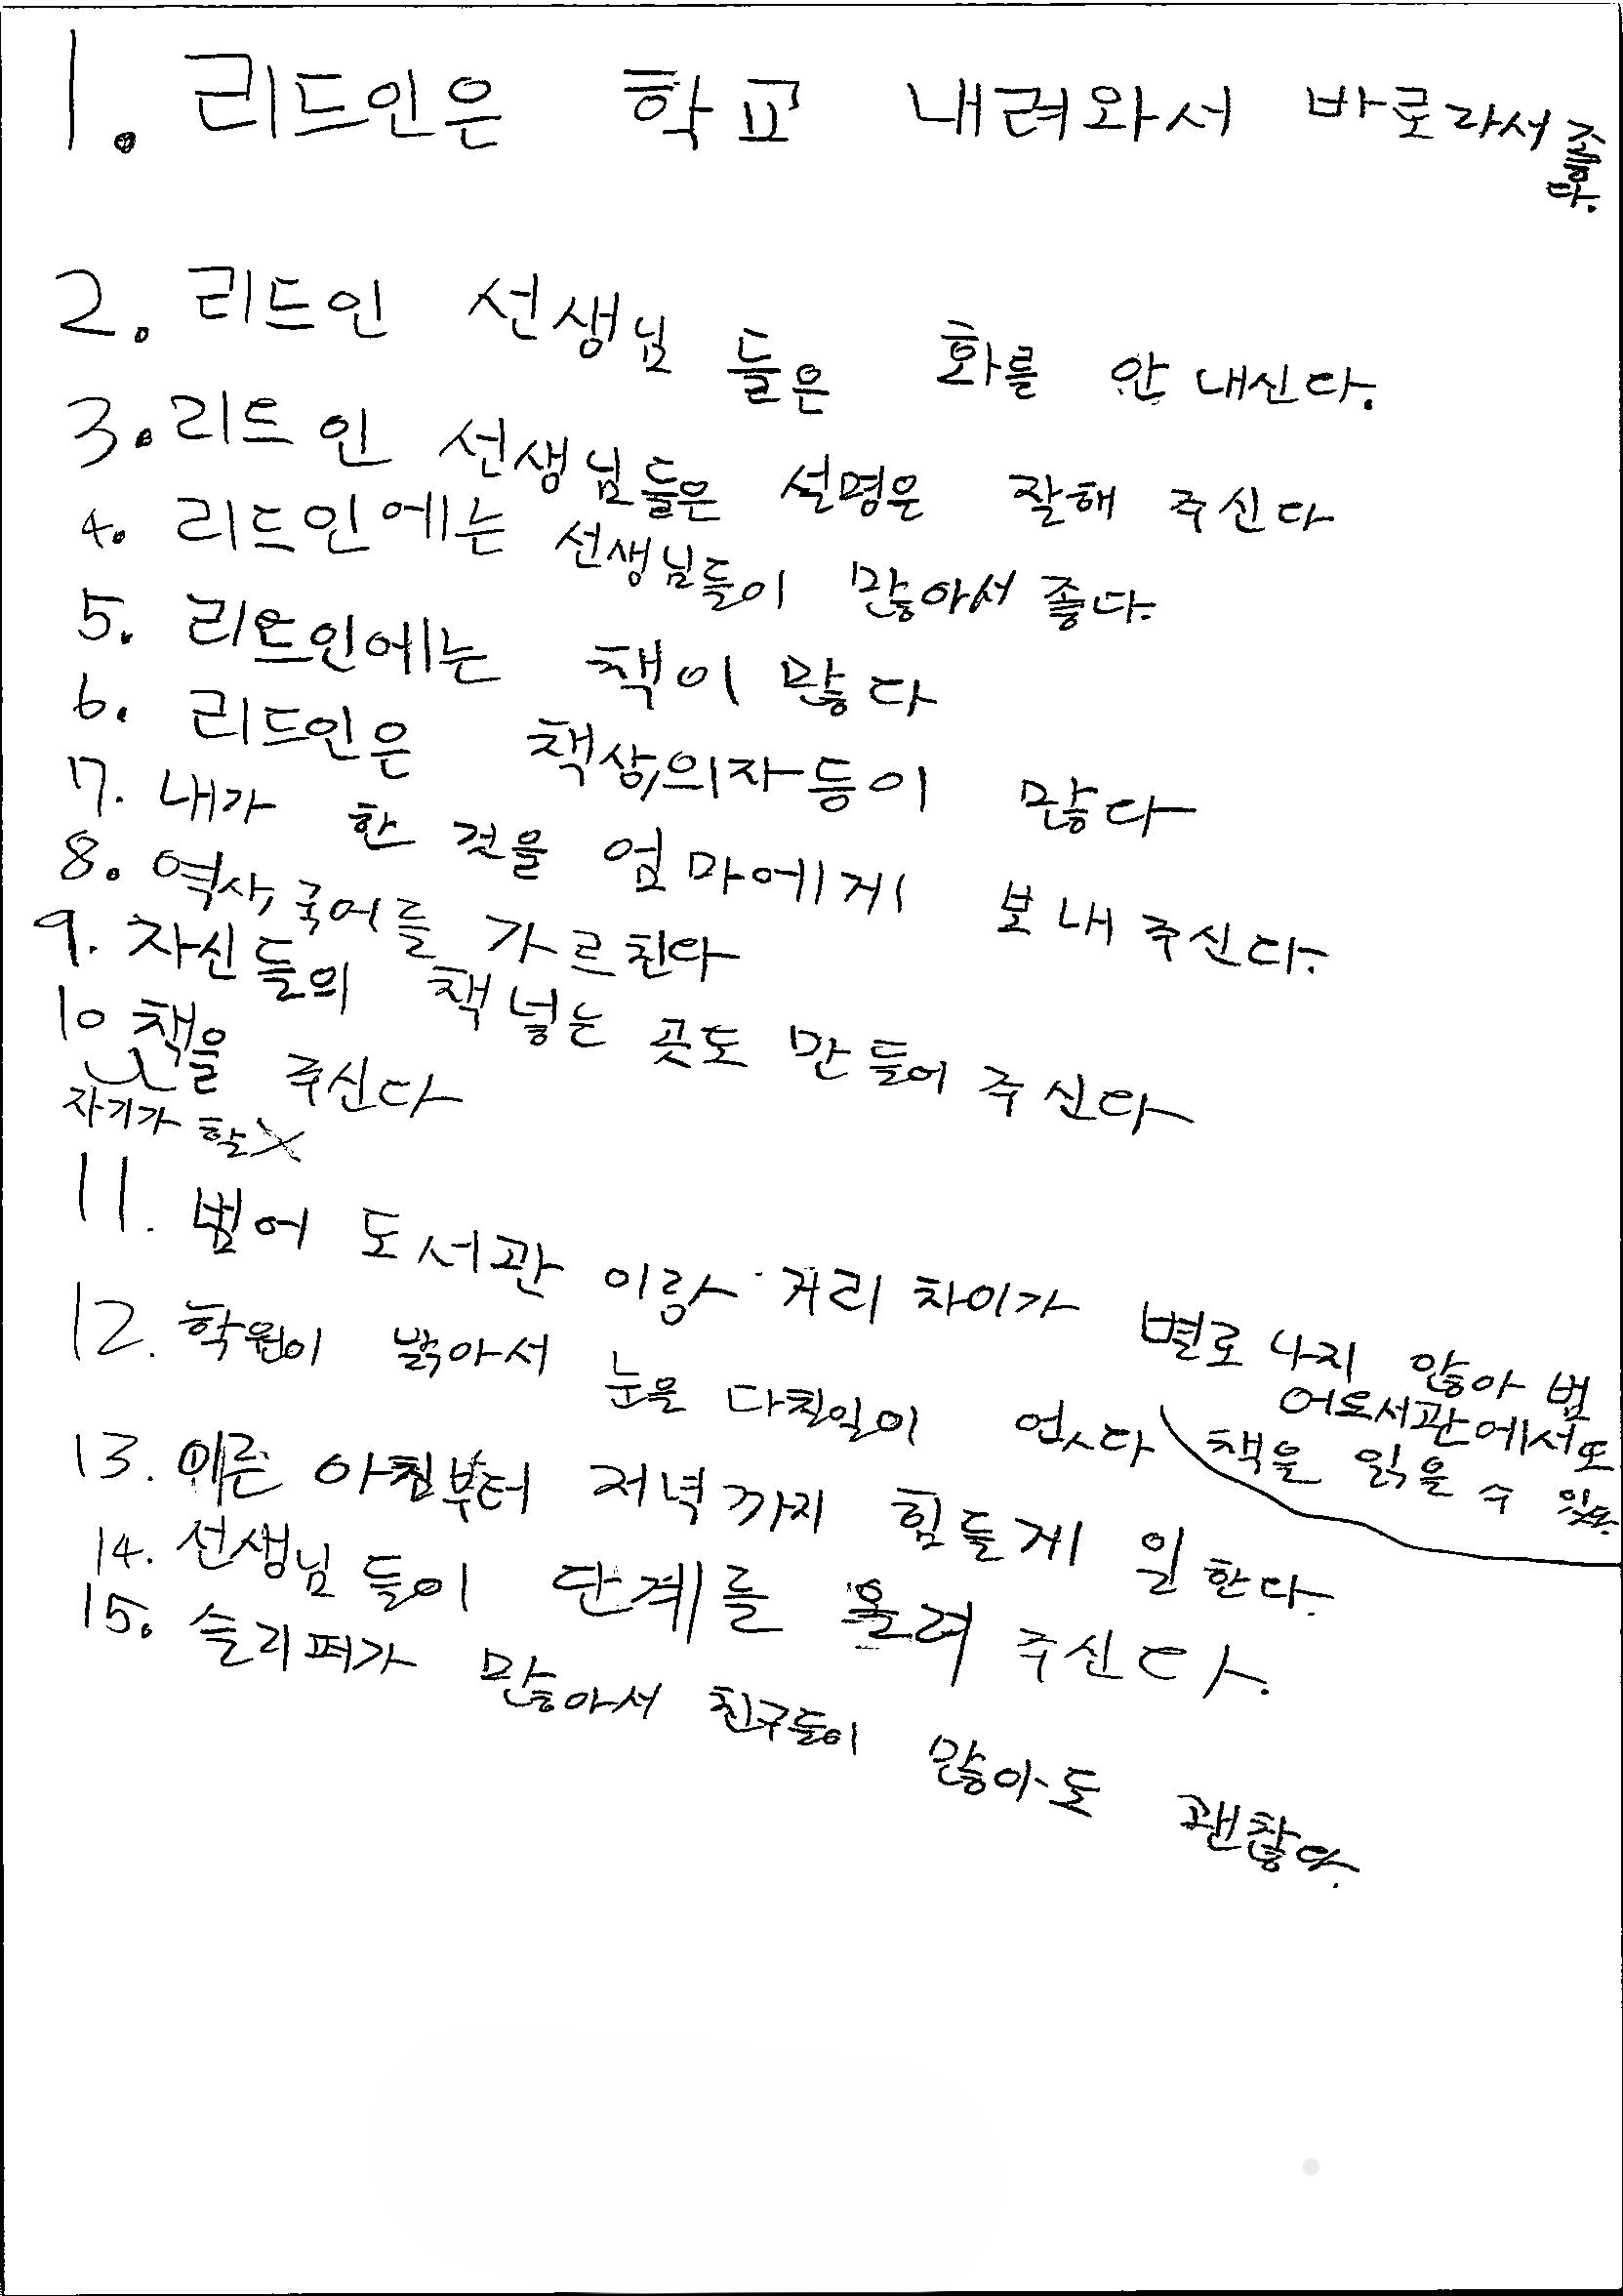 1. 리드인은 학교 내려와서 바로라서 좋다.
2. 리드인 선생님 들은 화를 안 내신다.
3. 리드인 선생님들은 설명은 잘해 주신다
4. 리드인에는 선생님들이 많아서 좋다.
5. 리드인에는 책이 많다
6. 리드인은 책상,의자등이 많다
7. 내가 한 것을 엄마에게 보내 주신다.
8. 역사, 국어를 가르친다
9. 자신들의 책 넣는 곳도 만들어 주신다
10 책을 주신다
자기가 할
11. 범어 도서관 이랑 거리 차이가 별로 나지 않아 범
어도서관에서도
책을 읽을 수 있다.
12. 학원이 밝아서 눈을 다칠일이 없다
13. 이른 아침부터 저녁까지 힘들게 일한다.
14. 선생님 들이 단계를 올려 주신다.
15. 슬리퍼가 많아서 친구들이 많아도 괜찮아.